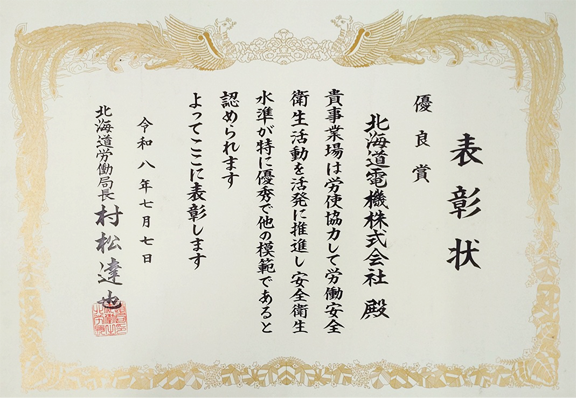 表彰状
優良賞
北海道電機株式会社 殿
貴事業場は労使協力して労働安全
衛生活動を活発に推進し安全衛生
水準が特に優秀で他の模範であると
認められます
よってここに表彰します
令和八年七月七日
北海道労働局長 村松達也